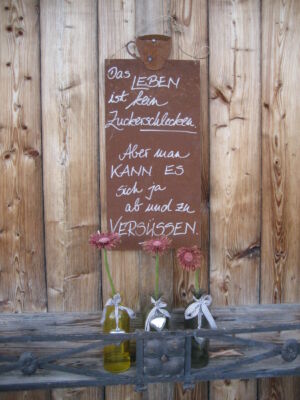 Das LEBEN
ist kein
Zuckerschlecken.
Aber man
KANN ES
sich ja
ab und zu
VERSÜSSEN.